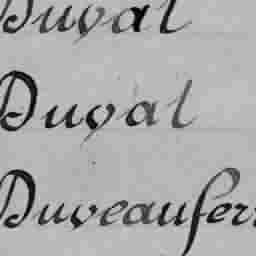 Duval
Duval
Duveaufer